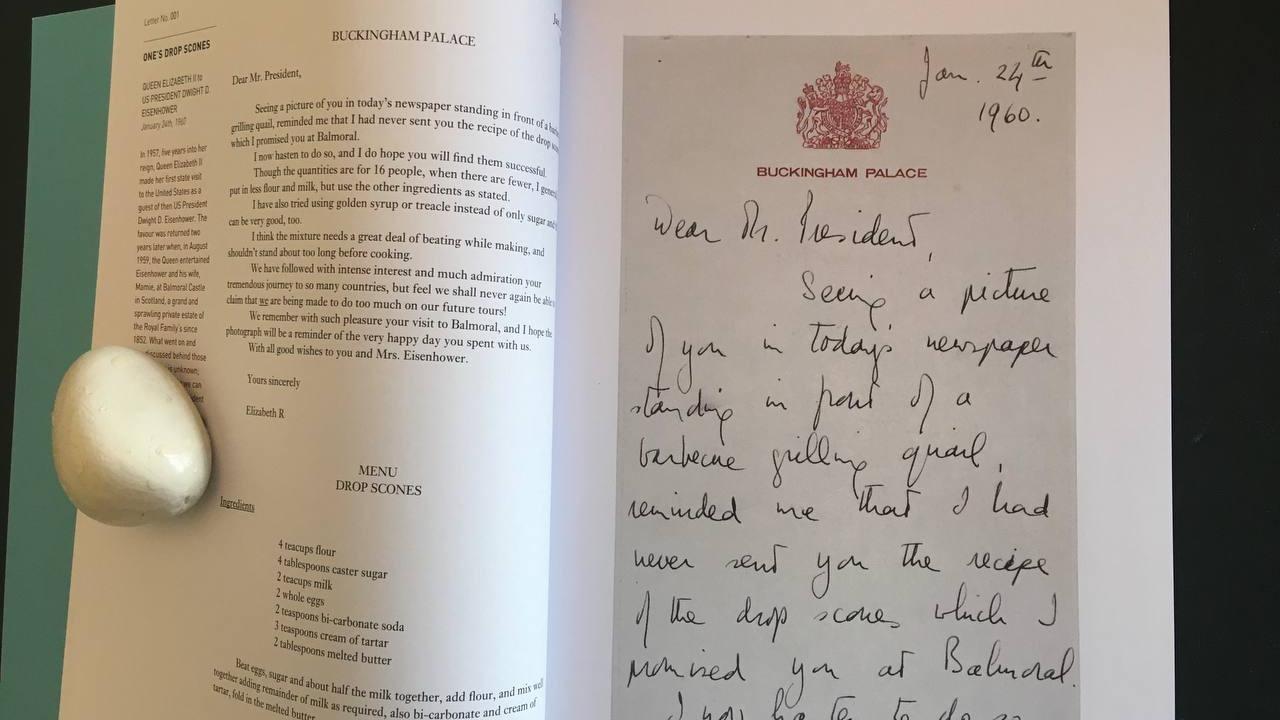 Letter No. 001
ONE'S DROP SCONES
QUEEN ELIZABETH II to
US PRESIDENT DWIGHT D.
EISENHOWER
January 24th, 1960
In 1957, five years into her
reign, Queen Elizabeth II
made her first state visit
to the United States as a
guest of then US President
Dwight D. Eisenhower. The
favour was returned two
years later when, in August
1959, the Queen entertained
Eisenhower and his wife,
Mamie, at Balmoral Castle
in Scotland, a grand and
sprawling private estate of
the Royal Family's since
1852. What went on and
discussed behind those
is unknown;
we can
BUCKINGHAM PALACE
Dear Mr. President,
Seeing a picture of you in today's newspaper standing in front of a
grilling quail, reminded me that I had never sent you the recipe of the drop
which I promised you at Balmoral.
I now hasten to do so, and I do hope you will find them successful.
Though the quantities are for 16 people, when there are fewer, I
put in less flour and milk, but use the other ingredients as stated.
I have also tried using golden syrup or treacle instead of only sugar
can be very good, too.
I think the mixture needs a great deal of beating while making, and
shouldn't stand about too long before cooking.
We have followed with intense interest and much admiration your
tremendous journey to so many countries, but feel we shall never again be
claim that we are being made to do too much on our future tours!
We remember with such pleasure your visit to Balmoral, and I hope the
photograph will be a reminder of the very happy day you spent with us.
With all good wishes to you and Mrs. Eisenhower.
Yours sincerely
Elizabeth R
MENU
DROP SCONES
Ingredients
4 teacups flour
4 tablespoons caster sugar
2 teacups milk
2 whole eggs
2 teaspoons bi-carbonate soda
3 teaspoons cream of tartar
2 tablespoons melted butter
Beat eggs, sugar and about half the milk together, add flour, and mix well
together adding remainder of milk as required, also bi-carbonate and cream of
tartar, fold in the melted butter
Jan. 24th
1960.
BUCKINGHAM PALACE
Dear Mr. President,
Seeing a picture
of you in today's newspaper
standing in front of a
barbecue grilling quail,
reminded me that I had
never sent you the recipe
of the drop scones which I
promised you at Balmoral.
I now hasten to do so